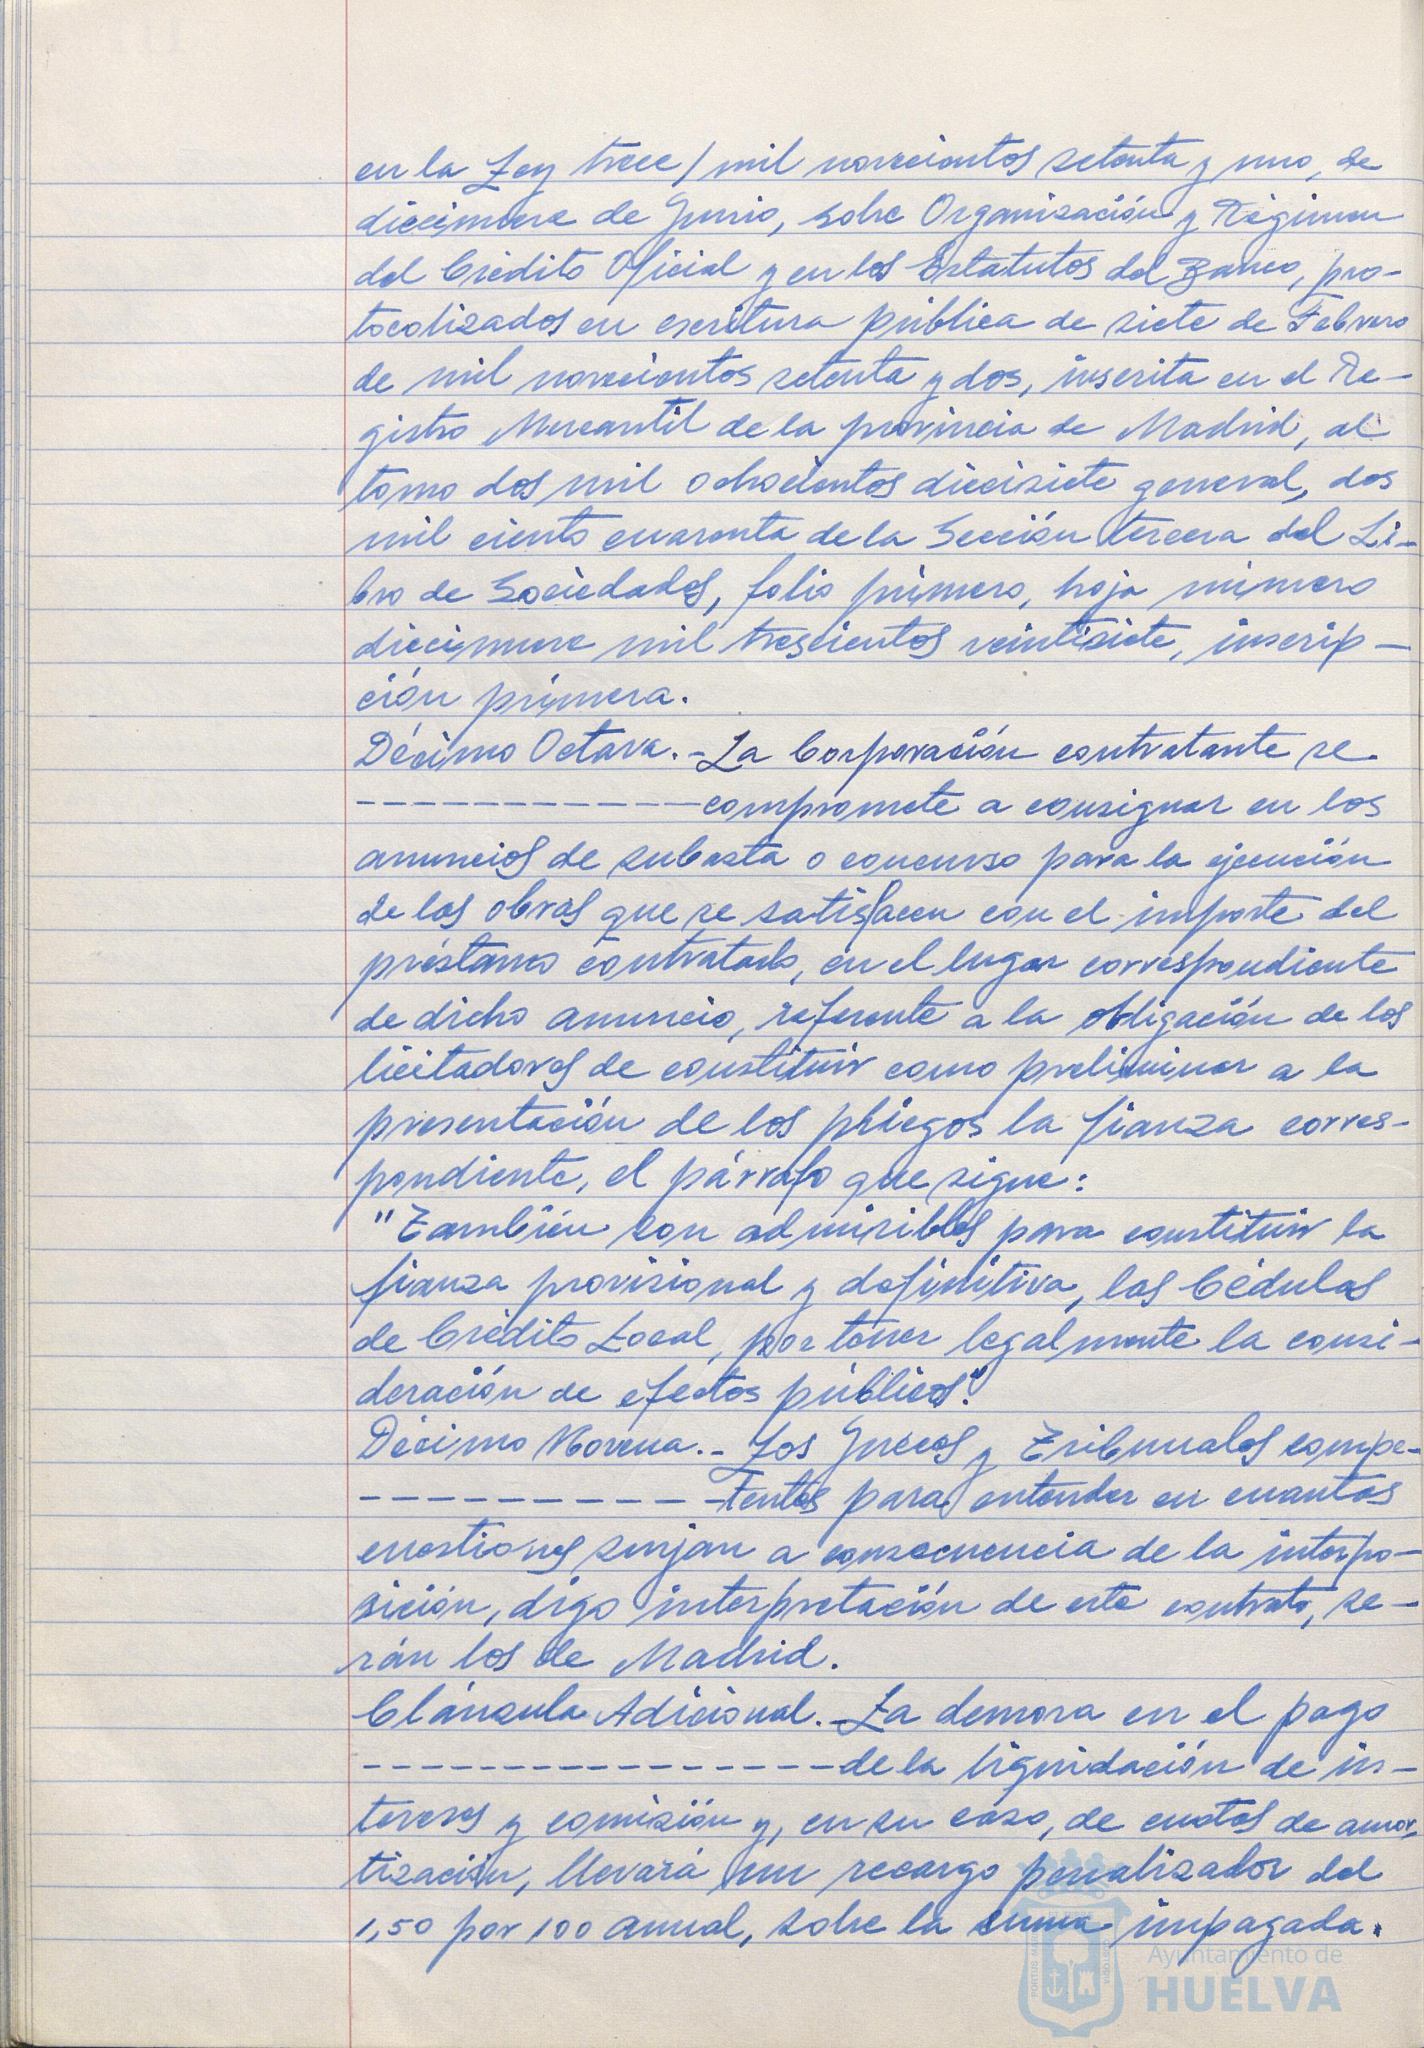 en la Ley trece/mil novecientos setenta y uno, de
diecinueve de Junio, sobre Organización y Régimen
del Crédito Oficial y en los Estatutos del Banco, pro-
tocolizados en escritura pública de siete de Febrero
de mil novecientos setenta y dos, inscrita en el Re-
gistro Mercantil de la provincia de Madrid, al
tomo dos mil ochocientos diecisiete general, dos
mil ciento cuarenta de la Sección tercera del Li-
bro de Sociedades, folio primero, hoja número
diecinueve mil trescientos veintisiete, inscrip-
ción primera.
Décimo Octava.- La Corporación contratante se
----------- compromete a consignar en los
anuncios de subasta o concurso para la ejecución
de las obras que se satisfacen con el importe del
préstamo contratado, en el lugar correspondiente
de dicho anuncio, referente a la obligación de los
licitadores de constituir como preliminar a la
presentación de los pliegos la fianza corres-
pondiente, el párrafo que sigue:
"También son admisibles para constituir la
fianza provisional y definitiva, las Cédulas
de Crédito Local, por tener legalmente la consi-
deración de efectos públicos".
Décimo Novena.- Los Jueces y Tribunales compe-
----------- tentes para entender en cuantas
cuestiones surjan a consecuencia de la interpo-
sición, digo interpretación de este contrato, se-
rán los de Madrid.
Cláusula Adicional.- La demora en el pago
--------------- de la liquidación de in-
tereses y comisión y, en su caso, de cuotas de amor-
tización, llevará un recargo penalizador del
1,50 por 100 anual, sobre la suma impagada.
Ayuntamiento de
HUELVA